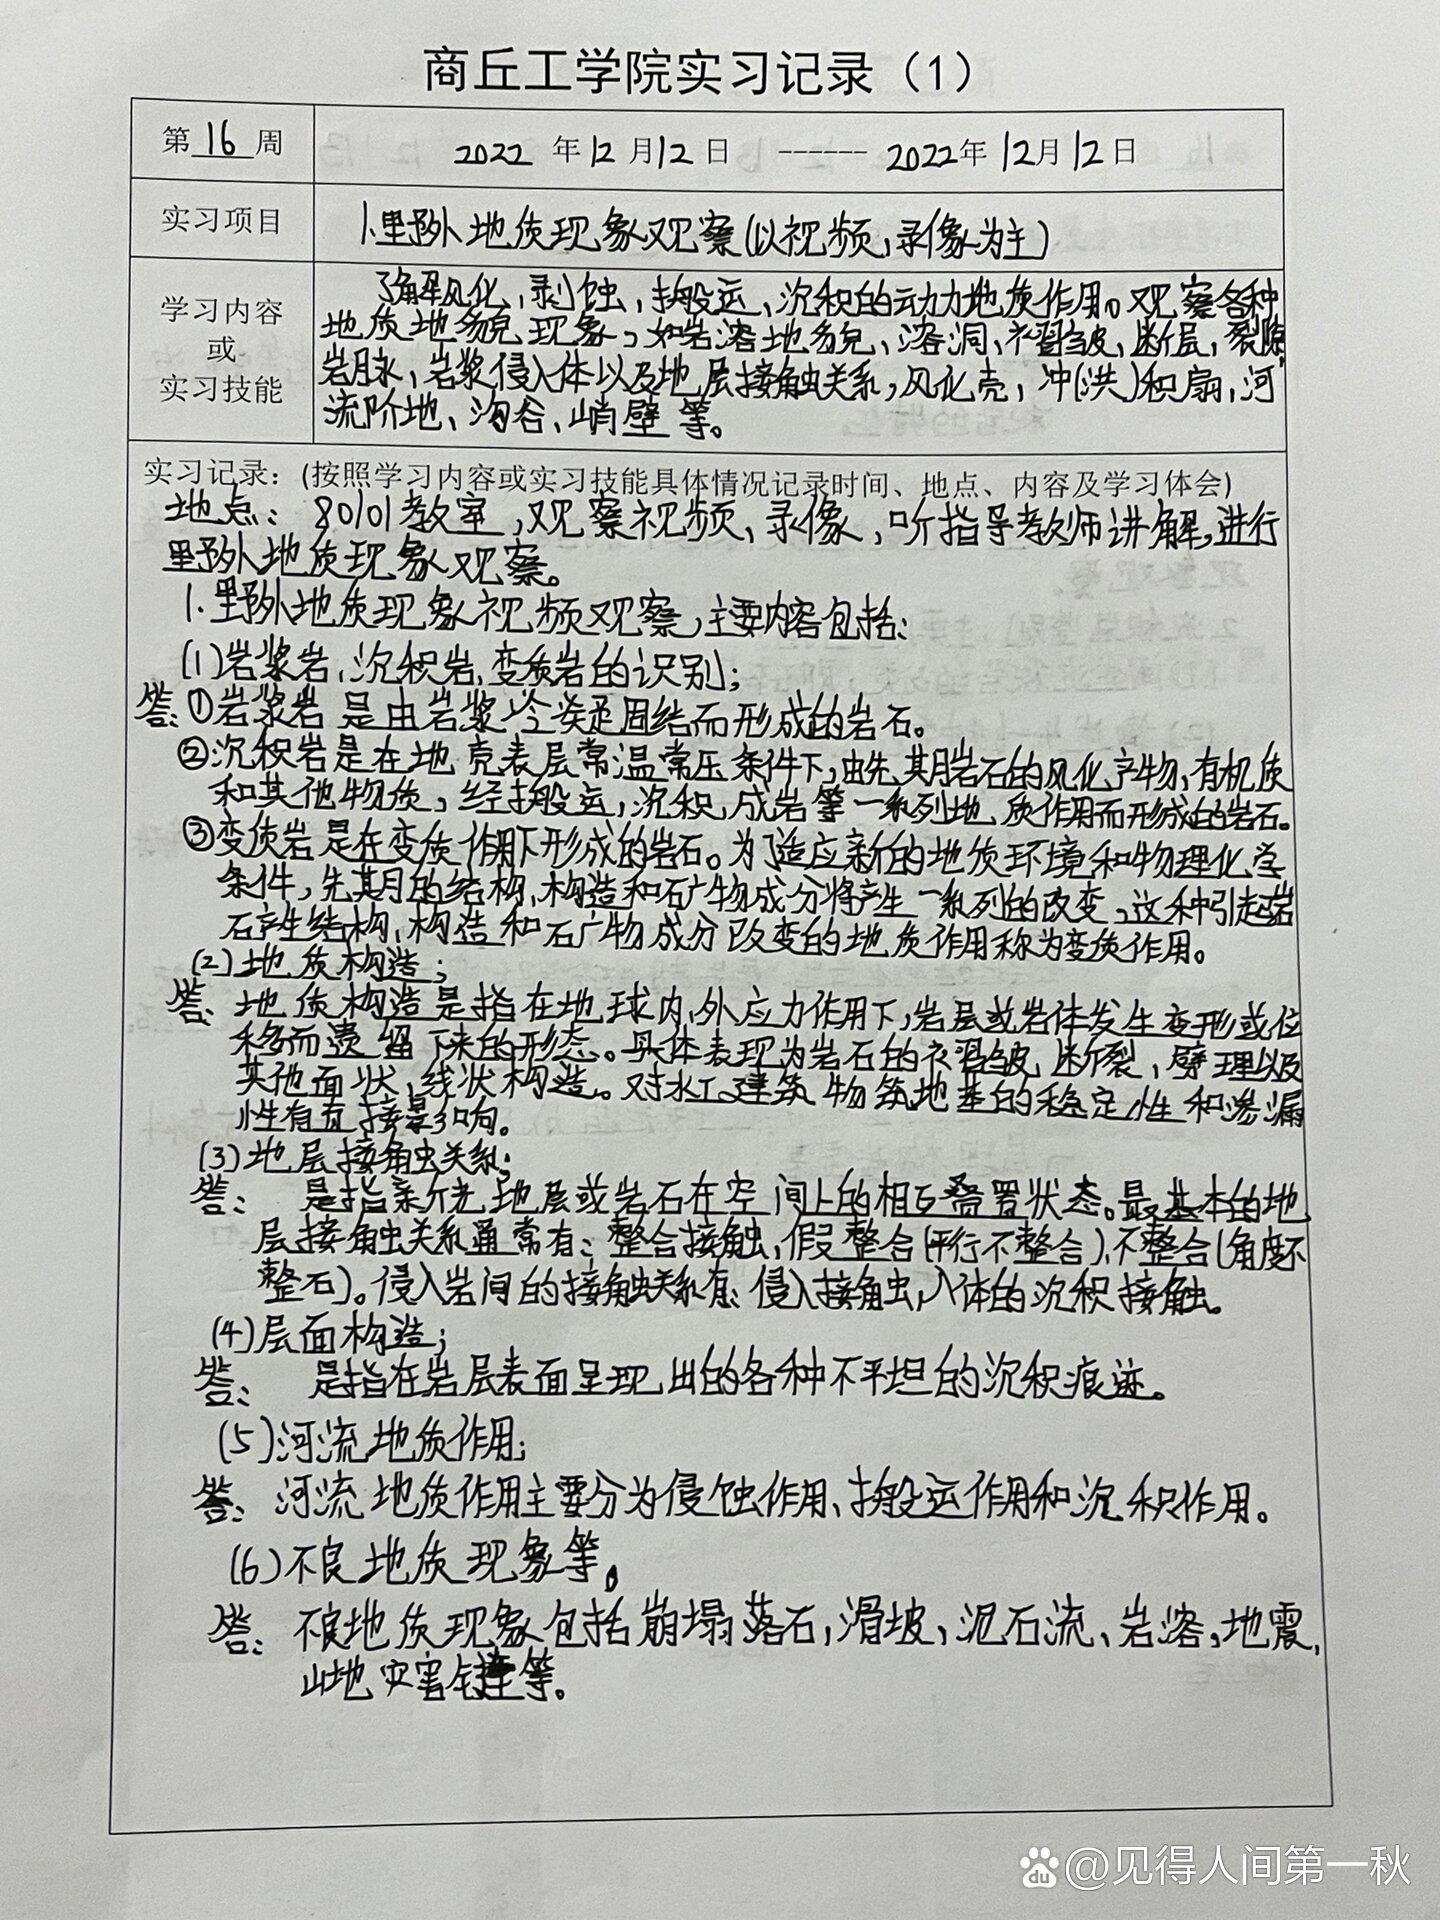 商丘工学院实习记录（1）
第16周
2022年12月12日------2022年12月12日
实习项目
1.野外地质现象观察(以视频,录像为主)
学习内容
或
实习技能
了解风化,剥蚀,搬运、沉积的动力地质作用。观察各种
地质地貌现象,如岩溶地貌、溶洞、褶皱,断层,裂隙,
岩脉,岩浆侵入体以及地层接触关系,风化壳,冲(洪)积扇,河
流阶地、沟谷、峭壁等。
实习记录：(按照学习内容或实习技能具体情况记录时间、地点、内容及学习体会)
地点：80101教室,观察视频、录像,听指导教师讲解,进行
野外地质现象观察。
1.野外地质现象视频观察,主要内容包括:
(1)岩浆岩、沉积岩、变质岩的识别;
答:①岩浆岩是由岩浆冷凝固结而形成的岩石。
②沉积岩是在地壳表层常温常压条件下,由先期岩石的风化产物,有机质
和其他物质,经搬运,沉积,成岩等一系列地质作用而形成的岩石。
③变质岩是在变质作用下形成的岩石。为了适应新的地质环境和物理化学
条件,先期的结构、构造和矿物成分将产生一系列的改变,这种引起岩
石产生结构、构造和矿物成分改变的地质作用称为变质作用。
(2)地质构造;
答:地质构造是指在地球内、外应力作用下,岩层或岩体发生变形或位
移而遗留下来的形态。具体表现为岩石的褶皱、断裂,劈理以及
其他面状,线状构造。对水工建筑物筑地基的稳定性和渗漏
性有直接影响。
(3)地层接触关系;
答:是指新老地层或岩石在空间上的相互叠置状态。最基本的地
层接触关系通常有:整合接触,假整合(平行不整合),不整合(角度不
整石)。侵入岩间的接触关系有:侵入接触,入体的沉积接触。
(4)层面构造;
答:是指在岩层表面呈现出的各种不平坦的沉积痕迹。
(5)河流地质作用;
答:河流地质作用主要分为侵蚀作用、搬运作用和沉积作用。
(6)不良地质现象等。
答:不良地质现象包括崩塌落石,滑坡,泥石流、岩溶,地震,
山地灾害链等。
@见得人间第一秋